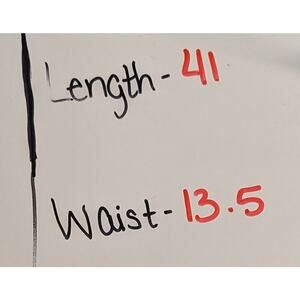 Length- 41
Waist- 13.5